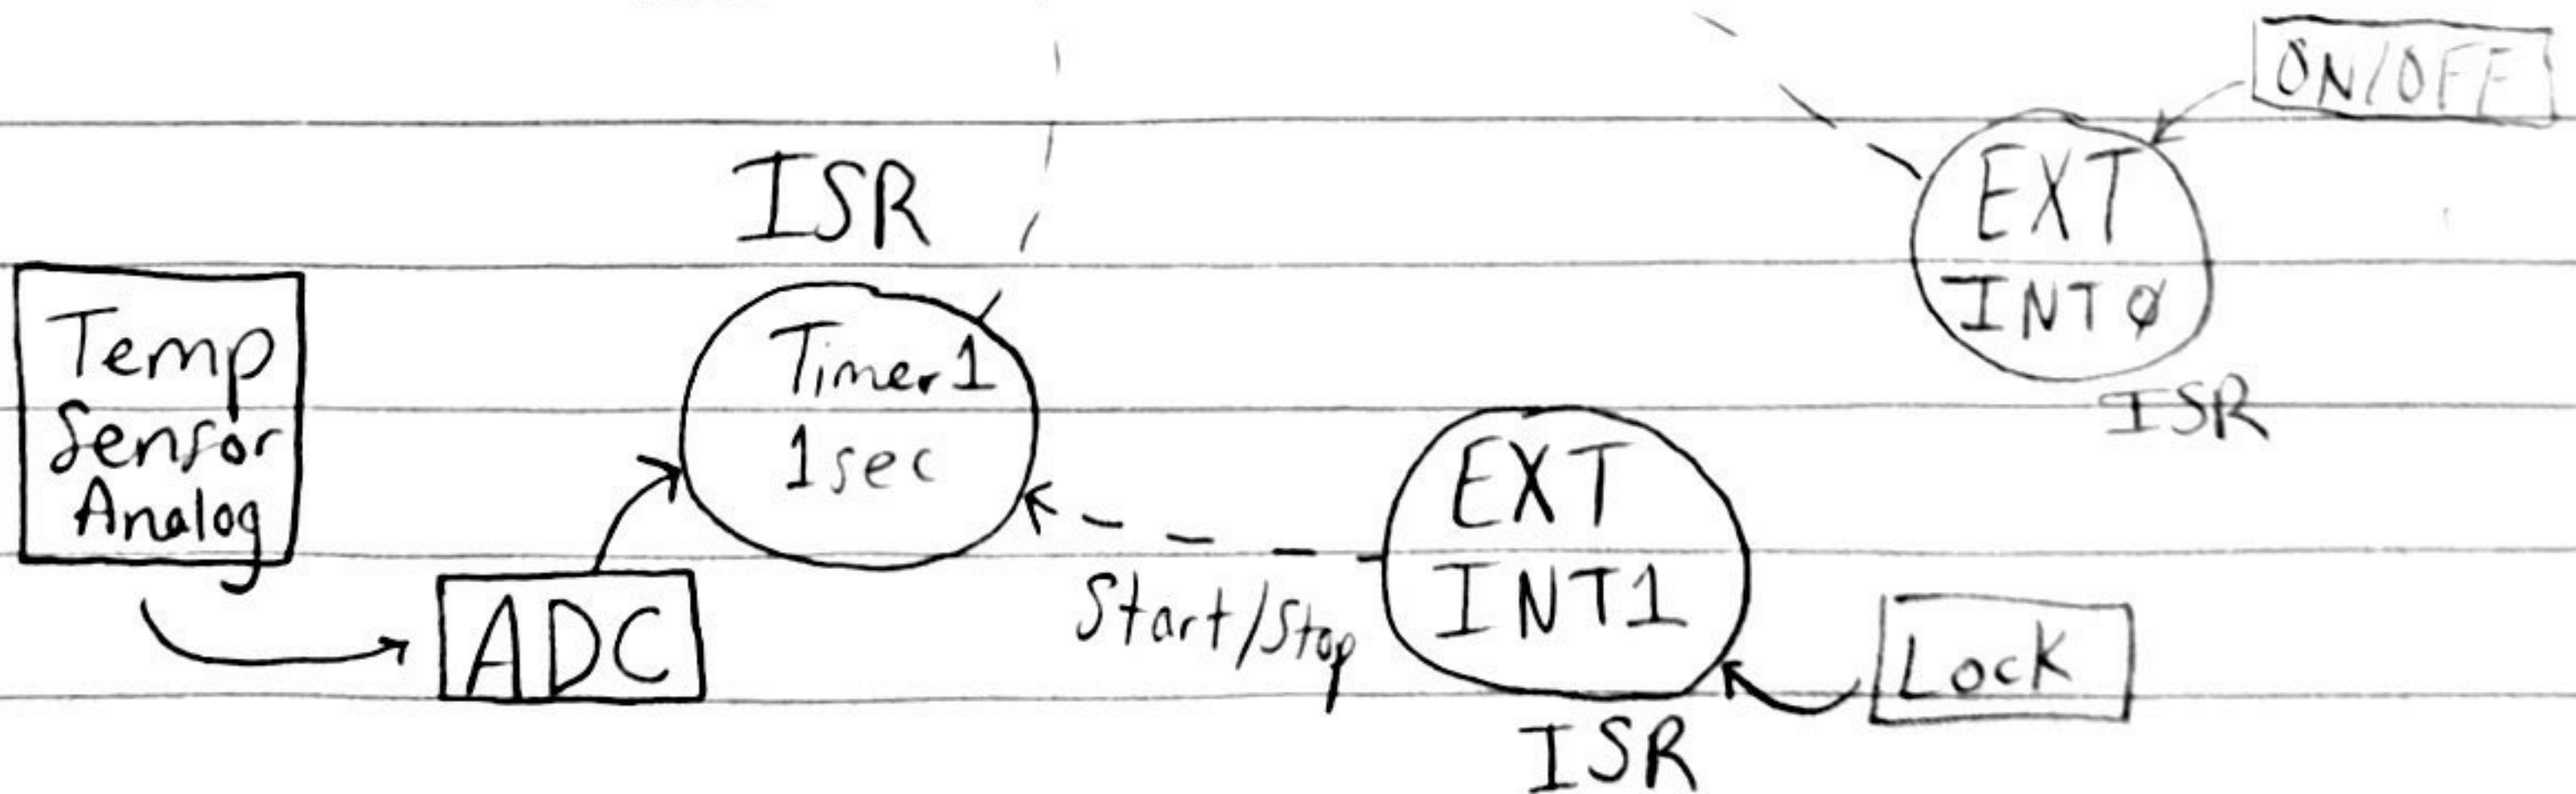 ON/OFF
ISR
EXT
INT0
ISR
Temp
Sensor
Analog
Timer1
1sec
EXT
INT1
Start/Stop
ADC
Lock
ISR